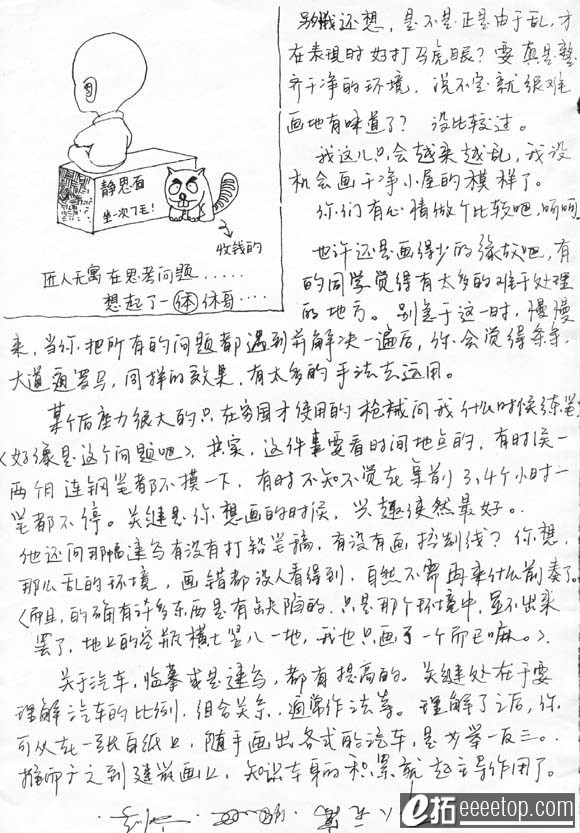 静思石
坐一次了毛!
收钱的
匠人无寓在思考问题.....
想起了一(体)休哥....
我还想,是不是正是由于乱,才
在表现时好打马虎眼?要真是整
齐干净的环境,说不定就很难
画地有味道了?没比较过。
我这儿只会越来越乱,我没
机会画干净小屋的模样了。
你们有心情做个比较吧,呵呵。
也许还是画得少的缘故吧,有
的同学觉得有太多的难于处理
的地方。别急于这一时,慢慢
来,当你把所有的问题都遇到并解决一遍后,你会觉得条条
大道通罗马,同样的效果,有太多的手法去运用。
某个后座力很大的只在穷国才使用的枪械问我什么时候练笔
<好像是这个问题吧>,其实,这件事要看时间地点的,有时候一
两个月连钢笔都不摸一下,有时不知不觉在桌前3,4个小时一
笔都不停。关键是你想画的时候,兴趣使然最好。
他还问那幅速写有没有打铅笔稿,有没有画控制线?你想,
那么乱的环境,画错都没人看得到,自然不需再来什么前奏了。
<而且,的确有许多东西是有缺陷的,只是那个环境中,显不出来
罢了,地上的空瓶横七竖八一地,我也只画了一个而已嘛。>.
关于汽车,临摹或是速写,都有提高的。关键处在于要
理解汽车的比例,组合关系,通常作法等。理解了之后,你
可以在一张白纸上,随手画出各式的汽车,是为举一反三。
推而广之到建筑画上,知识本身的积累就起主导作用了。
e拓
eeeetop.com